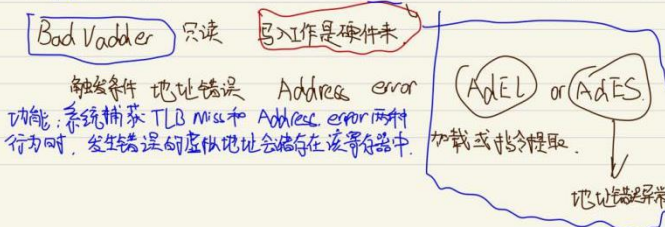 Bad Vadder 只读 写入工作是硬件来
触发条件 地址错误 Address error (AdEL) or (AdES)
功能：系统捕获 TLB Miss和 Address error 两种
行为时，发生错误的虚拟地址会储存在该寄存器中. 加载或指令提取.
地址错误异常